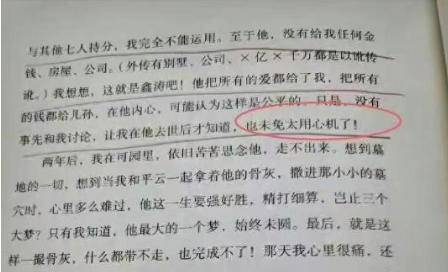 与其他七人持分，我完全不能运用。至于他，没有给我任何金
钱、房屋、公司。（外传有别墅、公司、×亿×千万都是以讹传
讹。）我想想，这就是鑫涛吧！他把所有的爱都给了我，把所有
的钱都给儿孙，在他内心，可能认为这样是公平的。只是，没有
事先和我讨论，让我在他去世后才知道，也未免太用心机了！
两年后，我在可园里，依旧苦苦思念他，走不出来。想到墓
地的一切，想到当我和平云一起拿着他的骨灰，撒进那小小的墓
穴时，心里多么难过，他这一生要强好胜，精打细算，岂止三个
大梦？只有我知道，他最大的一个梦，始终未圆。最后，就是这
样一撮骨灰，什么都带不走，也完成不了！那天我心里很痛，还